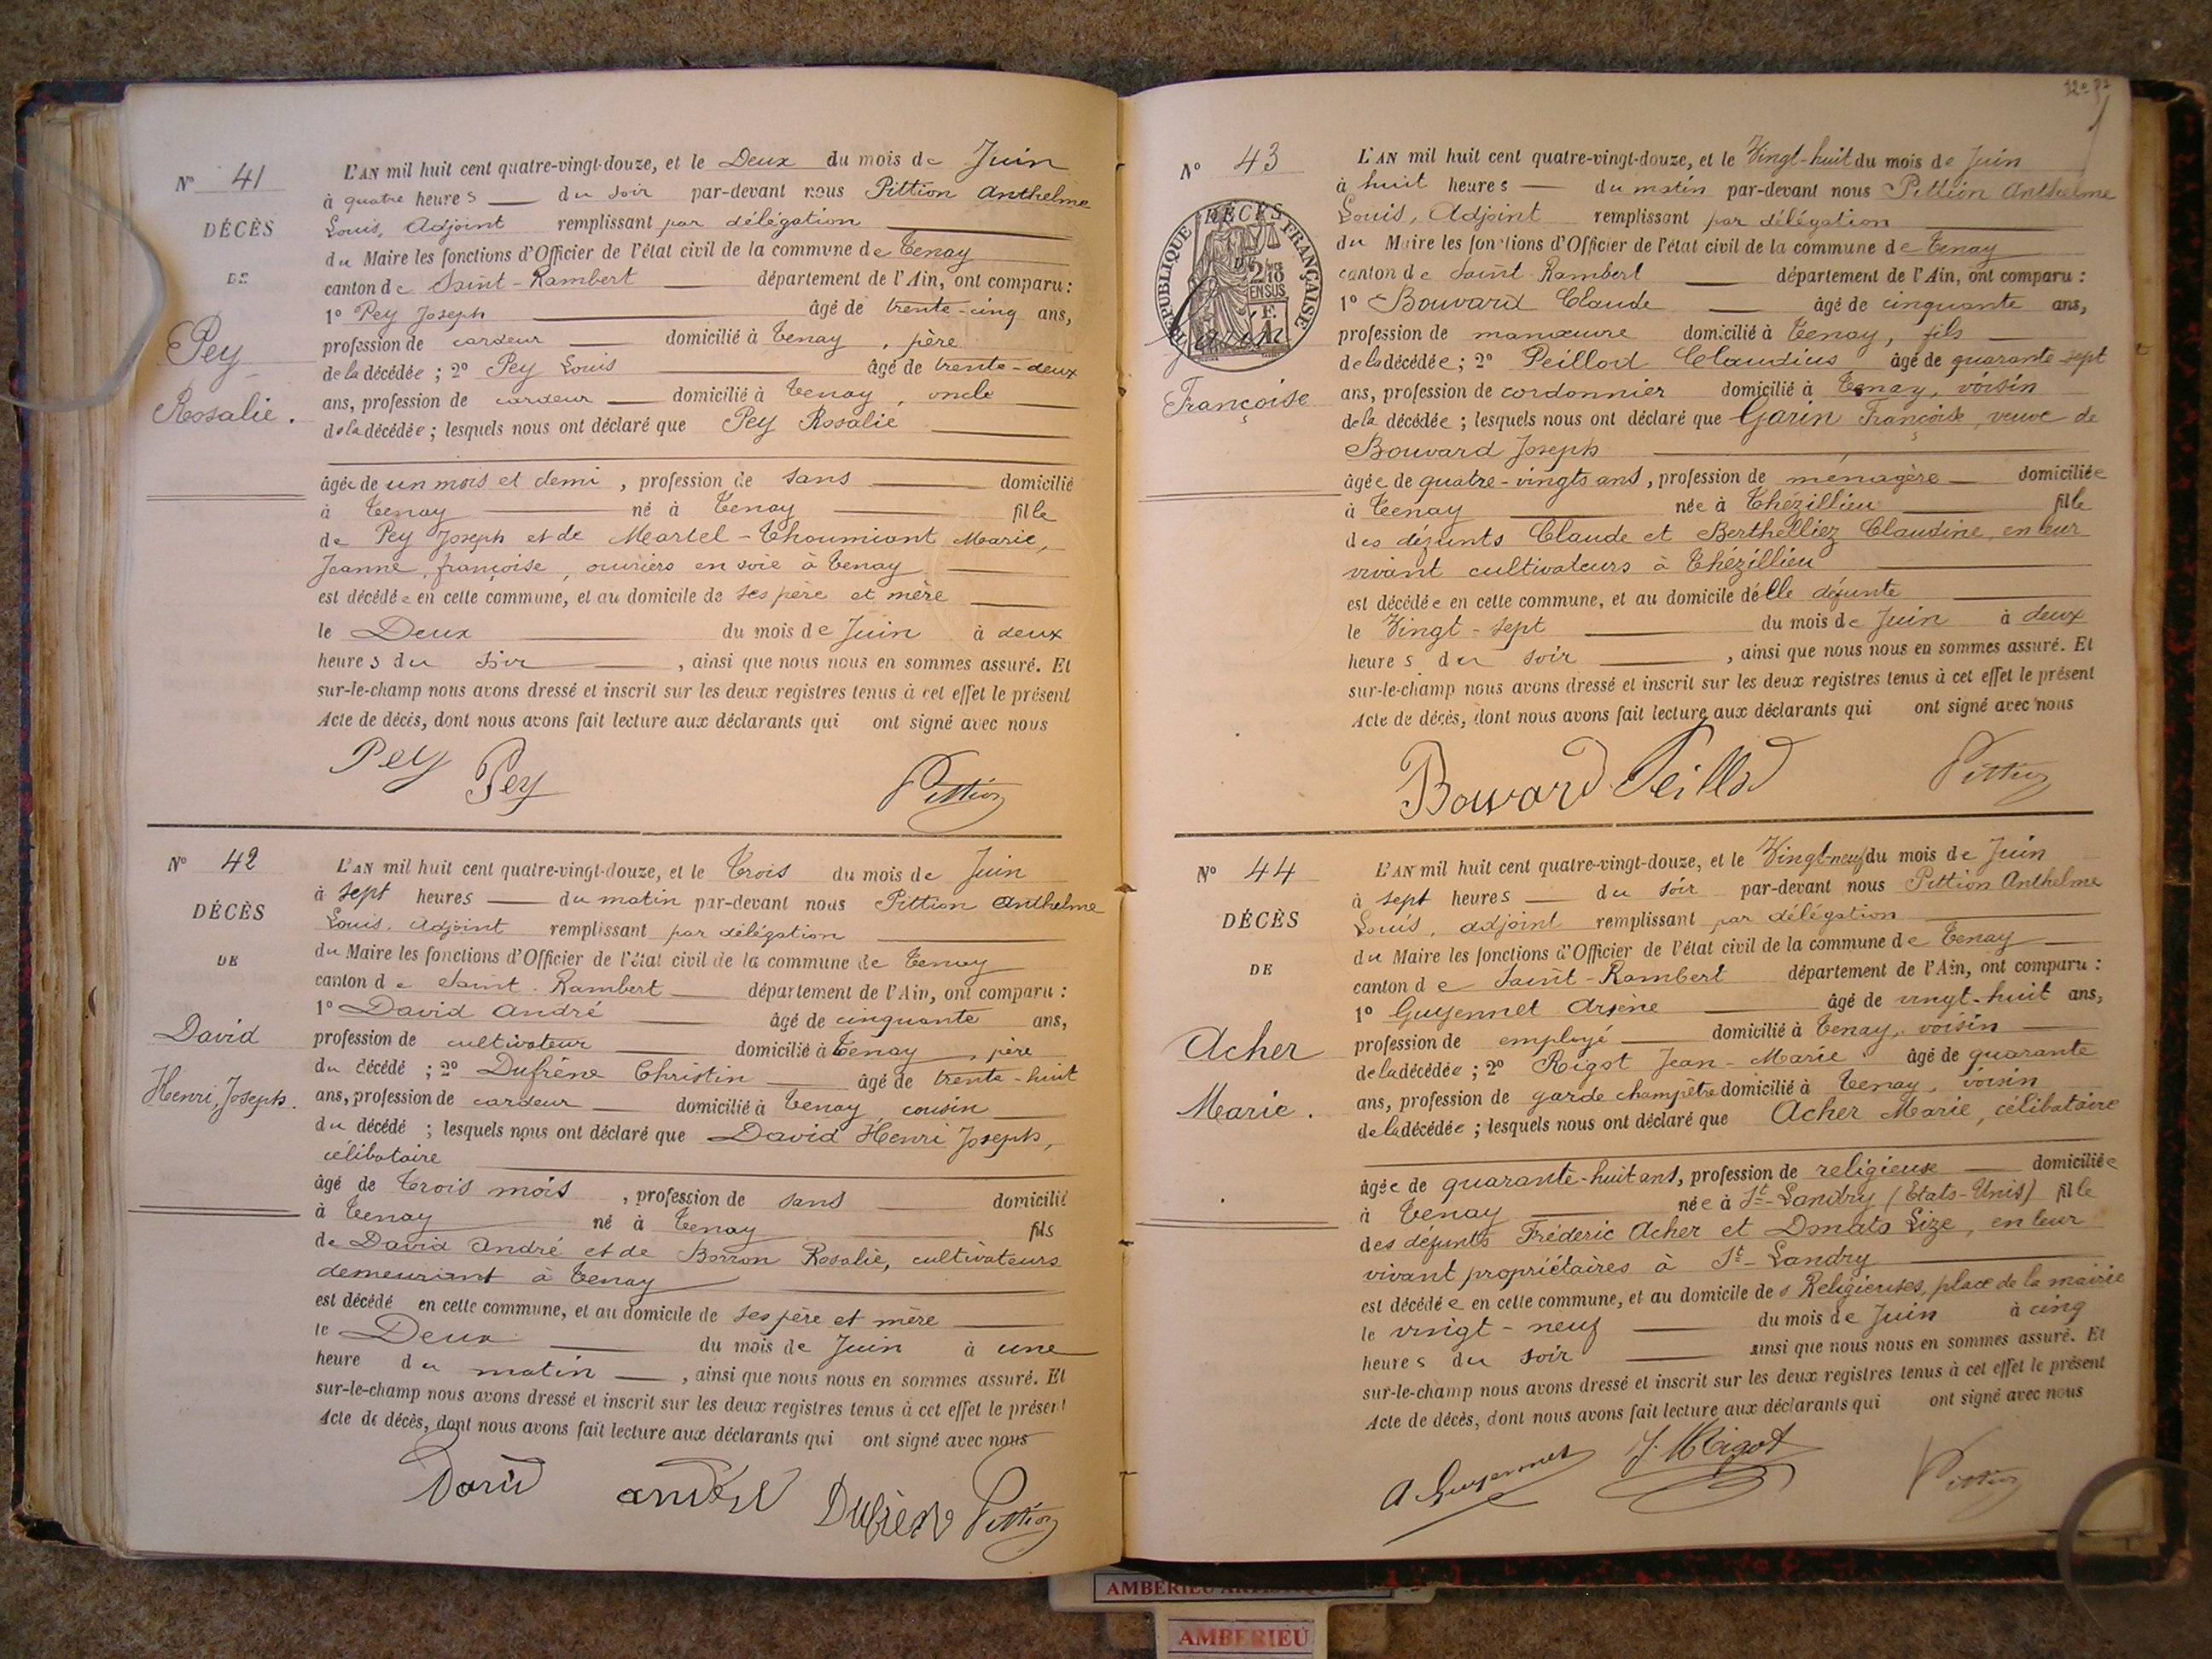 N° 41
DÉCÈS
DE
Pey
Rosalie.
L'AN mil huit cent quatre-vingt-douze, et le Deux du mois de Juin
à quatre heures du soir par-devant nous Pittion Anthelme
Louis, Adjoint remplissant par délégation
du Maire les fonctions d'Officier de l'état civil de la commune de Tenay
canton de Saint-Rambert département de l'Ain, ont comparu :
1° Pey Joseph âgé de trente-cinq ans,
profession de cardeur domicilié à Tenay, père
de la décédée ; 2° Pey Louis âgé de trente-deux
ans, profession de cardeur domicilié à Tenay, oncle
de la décédée ; lesquels nous ont déclaré que Pey Rosalie
âgée de un mois et demi, profession de sans domicilié
à Tenay né à Tenay fille
de Pey Joseph et de Martel-Thoumiant Marie,
Jeanne, françoise, ouvriers en soie à Tenay
est décédée en cette commune, et au domicile de ses père et mère
le Deux du mois de Juin à deux
heures du soir, ainsi que nous nous en sommes assuré. Et
sur-le-champ nous avons dressé et inscrit sur les deux registres tenus à cet effet le présent
Acte de décès, dont nous avons fait lecture aux déclarants qui ont signé avec nous
Pey Pey Pittion
N° 42
DÉCÈS
DE
David
Henri, Joseph.
L'AN mil huit cent quatre-vingt-douze, et le Trois du mois de Juin
à sept heures du matin par-devant nous Pittion Anthelme
Louis, Adjoint remplissant par délégation
du Maire les fonctions d'Officier de l'état civil de la commune de Tenay
canton de Saint-Rambert département de l'Ain, ont comparu :
1° David André âgé de cinquante ans,
profession de cultivateur domicilié à Tenay, père
du décédé ; 2° Dufrène Christin âgé de trente-huit
ans, profession de cardeur domicilié à Tenay, cousin
du décédé ; lesquels nous ont déclaré que David Henri Joseph,
célibataire
âgé de Trois mois, profession de sans domicilié
à Tenay né à Tenay fils
de David André et de Borron Rosalie, cultivateurs
demeurant à Tenay
est décédé en cette commune, et au domicile de ses père et mère
le Deux du mois de Juin à une
heure du matin, ainsi que nous nous en sommes assuré. Et
sur-le-champ nous avons dressé et inscrit sur les deux registres tenus à cet effet le présent
Acte de décès, dont nous avons fait lecture aux déclarants qui ont signé avec nous
David andré Pittion
N° 43
RÉPUBLIQUE FRANÇAISE
DÉCÈS
2/10 EN SUS
Garin
Françoise
L'AN mil huit cent quatre-vingt-douze, et le Vingt-huit du mois de Juin
à huit heures du matin par-devant nous Pittion Anthelme
Louis, Adjoint remplissant par délégation
du Maire les fonctions d'Officier de l'état civil de la commune de Tenay
canton de Saint-Rambert département de l'Ain, ont comparu :
1° Bouvard Claude âgé de cinquante ans,
profession de manœuvre domicilié à Tenay, fils
de la décédée ; 2° Peillod Claudius âgé de quarante sept
ans, profession de cordonnier domicilié à Tenay, voisin
de la décédée ; lesquels nous ont déclaré que Garin Françoise, veuve de
Bouvard Joseph
âgée de quatre-vingts ans, profession de ménagère domiciliée
à Tenay née à Thézillieu fille
des défunts Claude et Berthelliez Claudine, en leur
vivant cultivateurs à Thézillieu
est décédée en cette commune, et au domicile de lle défunte
le Vingt-sept du mois de Juin à deux
heures du soir, ainsi que nous nous en sommes assuré. Et
sur-le-champ nous avons dressé et inscrit sur les deux registres tenus à cet effet le présent
Acte de décès, dont nous avons fait lecture aux déclarants qui ont signé avec nous
Bouvard Peillod Pittion
N° 44
DÉCÈS
DE
Acher
Marie.
L'AN mil huit cent quatre-vingt-douze, et le Vingt-neuf du mois de Juin
à sept heures du soir par-devant nous Pittion Anthelme
Louis, adjoint remplissant par délégation
du Maire les fonctions d'Officier de l'état civil de la commune de Tenay
canton de Saint-Rambert département de l'Ain, ont comparu :
1° Guyennet Arsène âgé de vingt-huit ans,
profession de employé domicilié à Tenay, voisin
de la décédée ; 2° Rigot Jean-Marie âgé de quarante
ans, profession de garde champêtre domicilié à Tenay, voisin
de la décédée ; lesquels nous ont déclaré que Acher Marie, célibataire
âgée de quarante-huit ans, profession de religieuse domiciliée
à Tenay née à St-Landry (Etats-Unis) fille
des défunts Fréderic Acher et Donato Lize, en leur
vivant propriétaires à St-Landry
est décédée en cette commune, et au domicile des Religieuses, place de la mairie
le vingt-neuf du mois de Juin à cinq
heures du soir ainsi que nous nous en sommes assuré. Et
sur-le-champ nous avons dressé et inscrit sur les deux registres tenus à cet effet le présent
Acte de décès, dont nous avons fait lecture aux déclarants qui ont signé avec nous
A Guyennet J. M Rigot Pittion
AMBERIEU